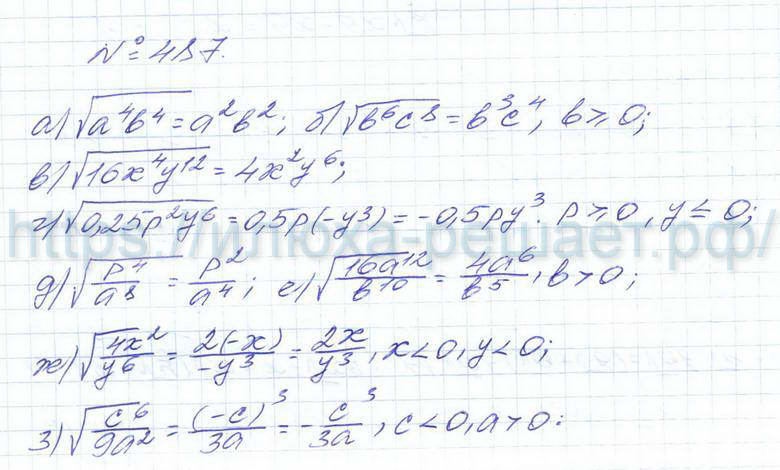 № 487.
а) √a⁴b⁴ = a²b²; б) √b⁶c⁸ = b³c⁴, b ≥ 0;
в) √16x⁴y¹² = 4x²y⁶;
г) √0,25p²y⁶ = 0,5p(-y³) = -0,5py³. p ≥ 0, y ≤ 0;
https://илюха-решает.рф/
д) √p⁴/a⁸ = p²/a⁴; е) √16a¹²/b¹⁰ = 4a⁶/b⁵, b > 0;
ж) √4x²/y⁶ = 2(-x)/-y³ = 2x/y³, x < 0, y < 0;
з) √c⁶/9a² = (-c)³/3a = -c³/3a, c < 0, a > 0.